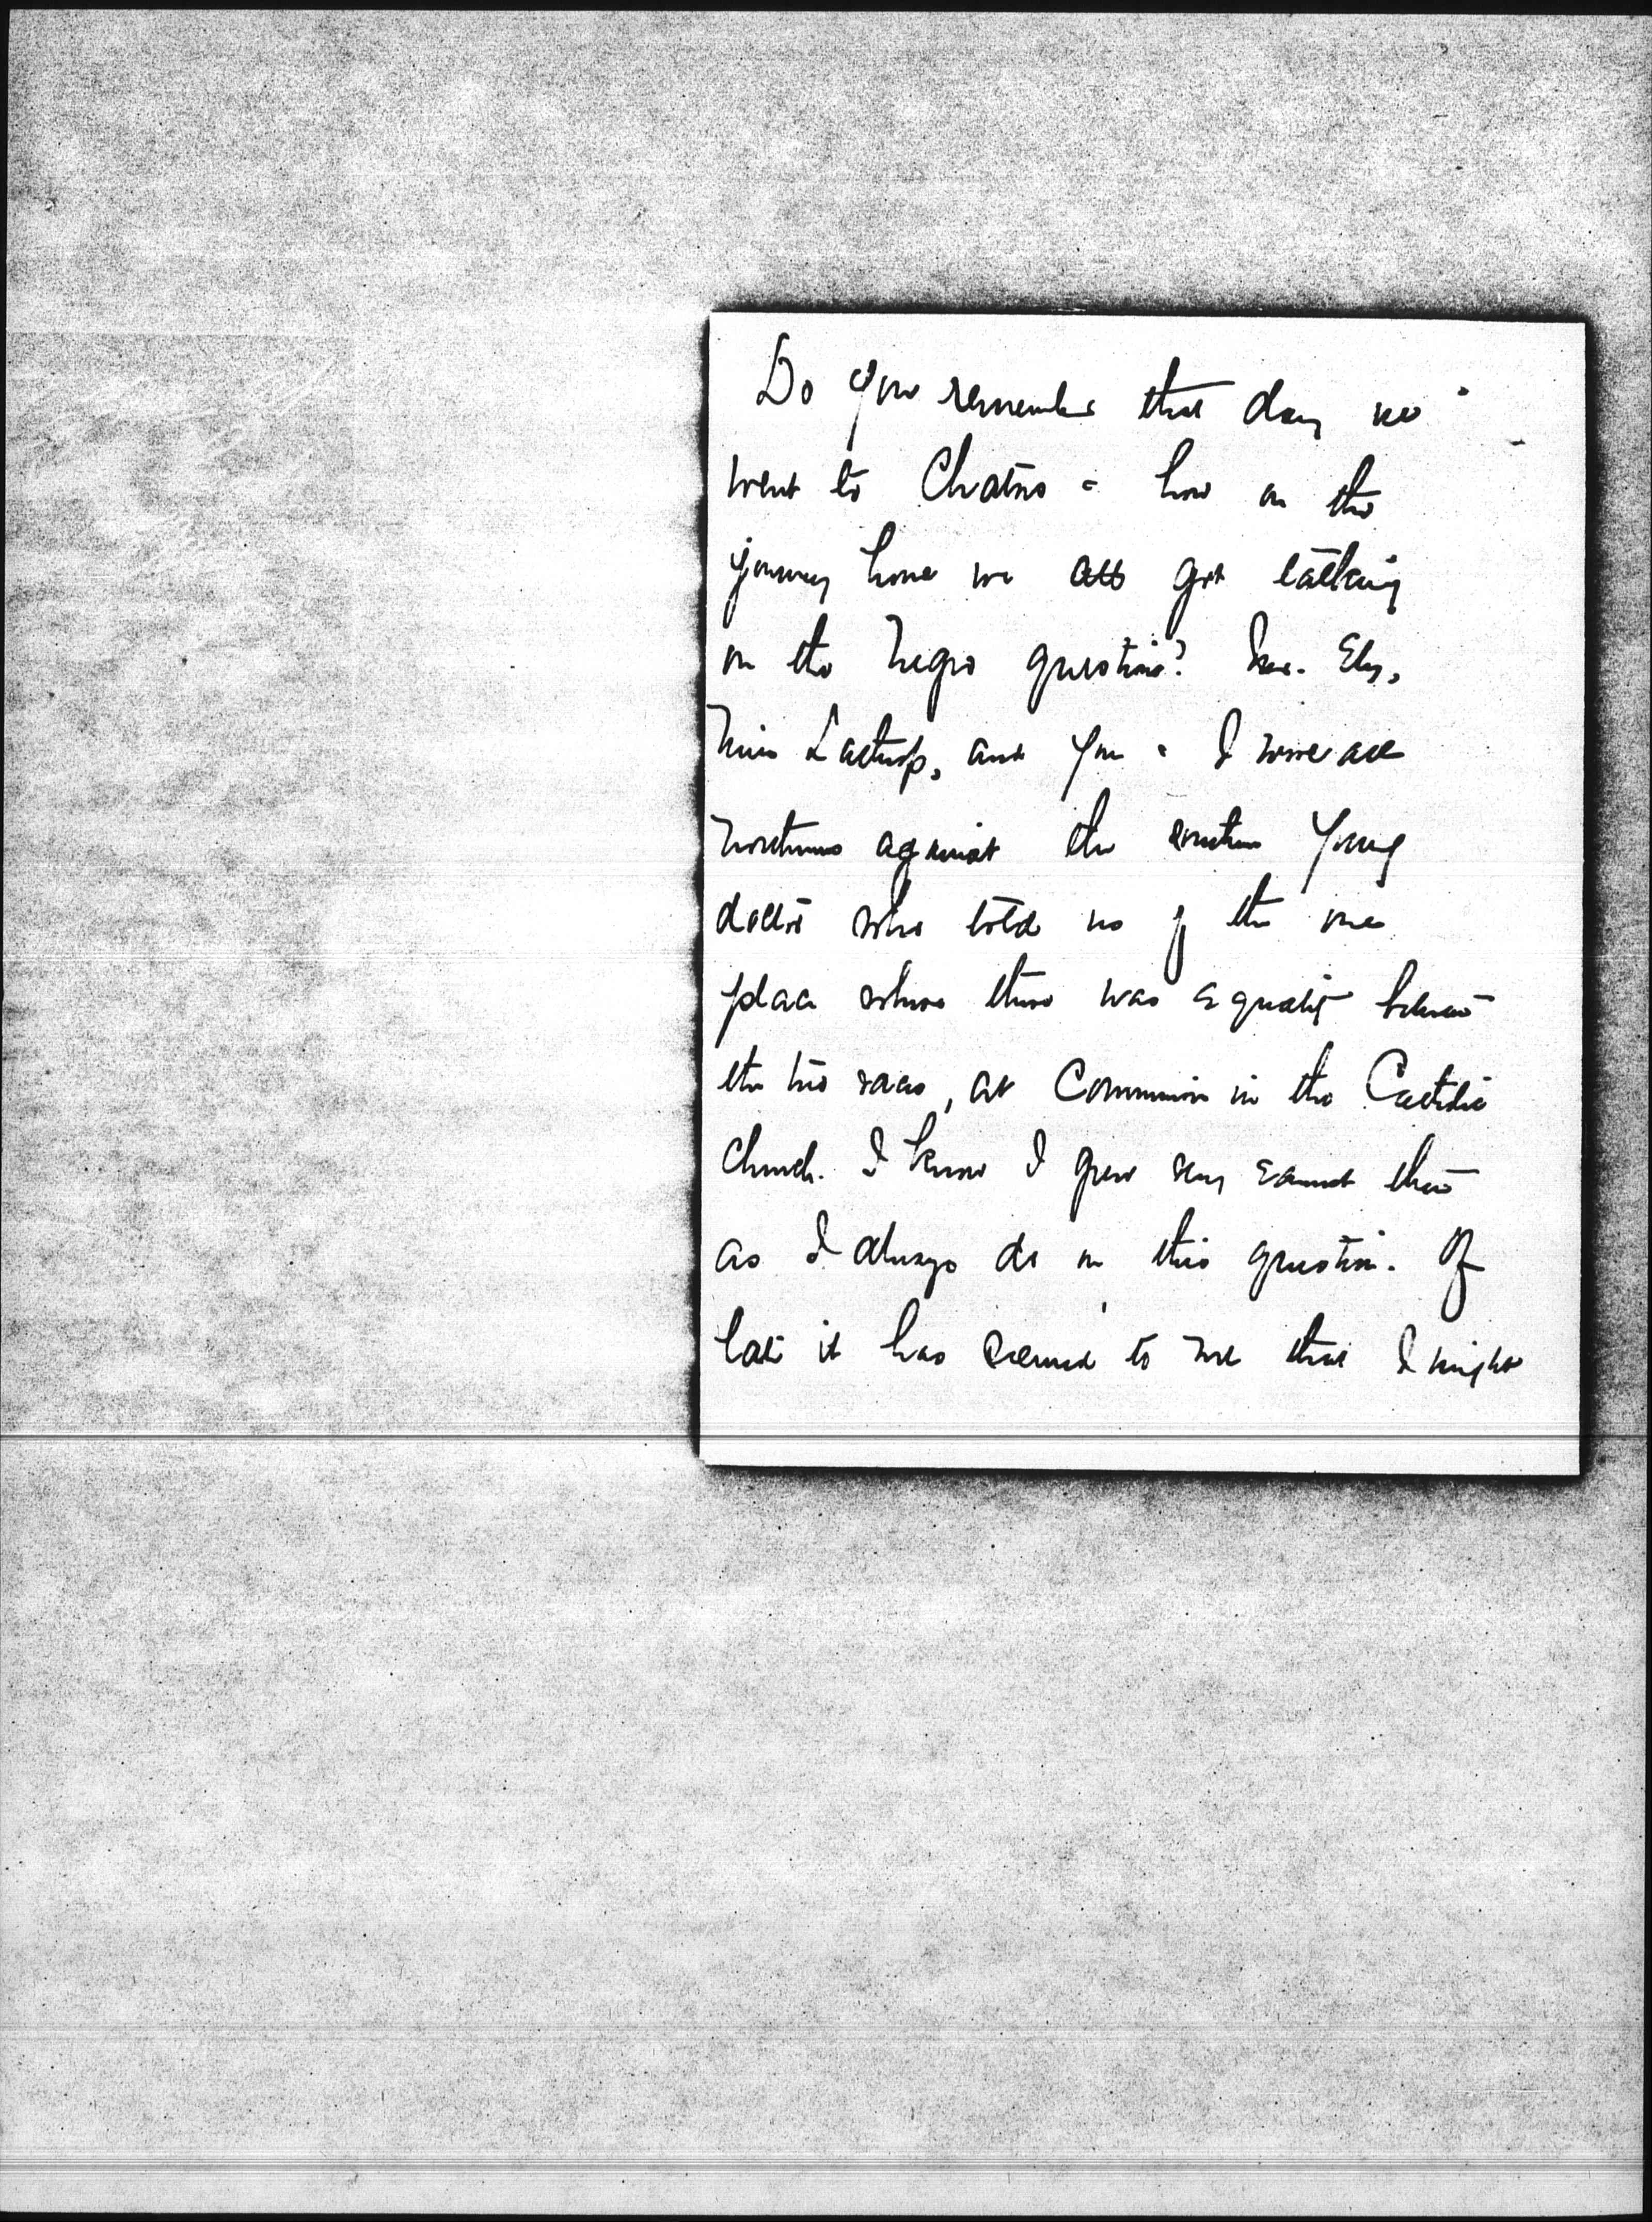 Do you remember that day we
went to Chatres - how on the
journey home we all got talking
on the Negro question? Mr. Ely,
Miss Lathrop, and you & I were all
northerners against the southern young
doctor who told us of the one
place where there was equality between
the two races, at Communion in the Catholic
Church. I know I grew very earnest then
as I always do on this question. Of
late it has seemed to me that I might